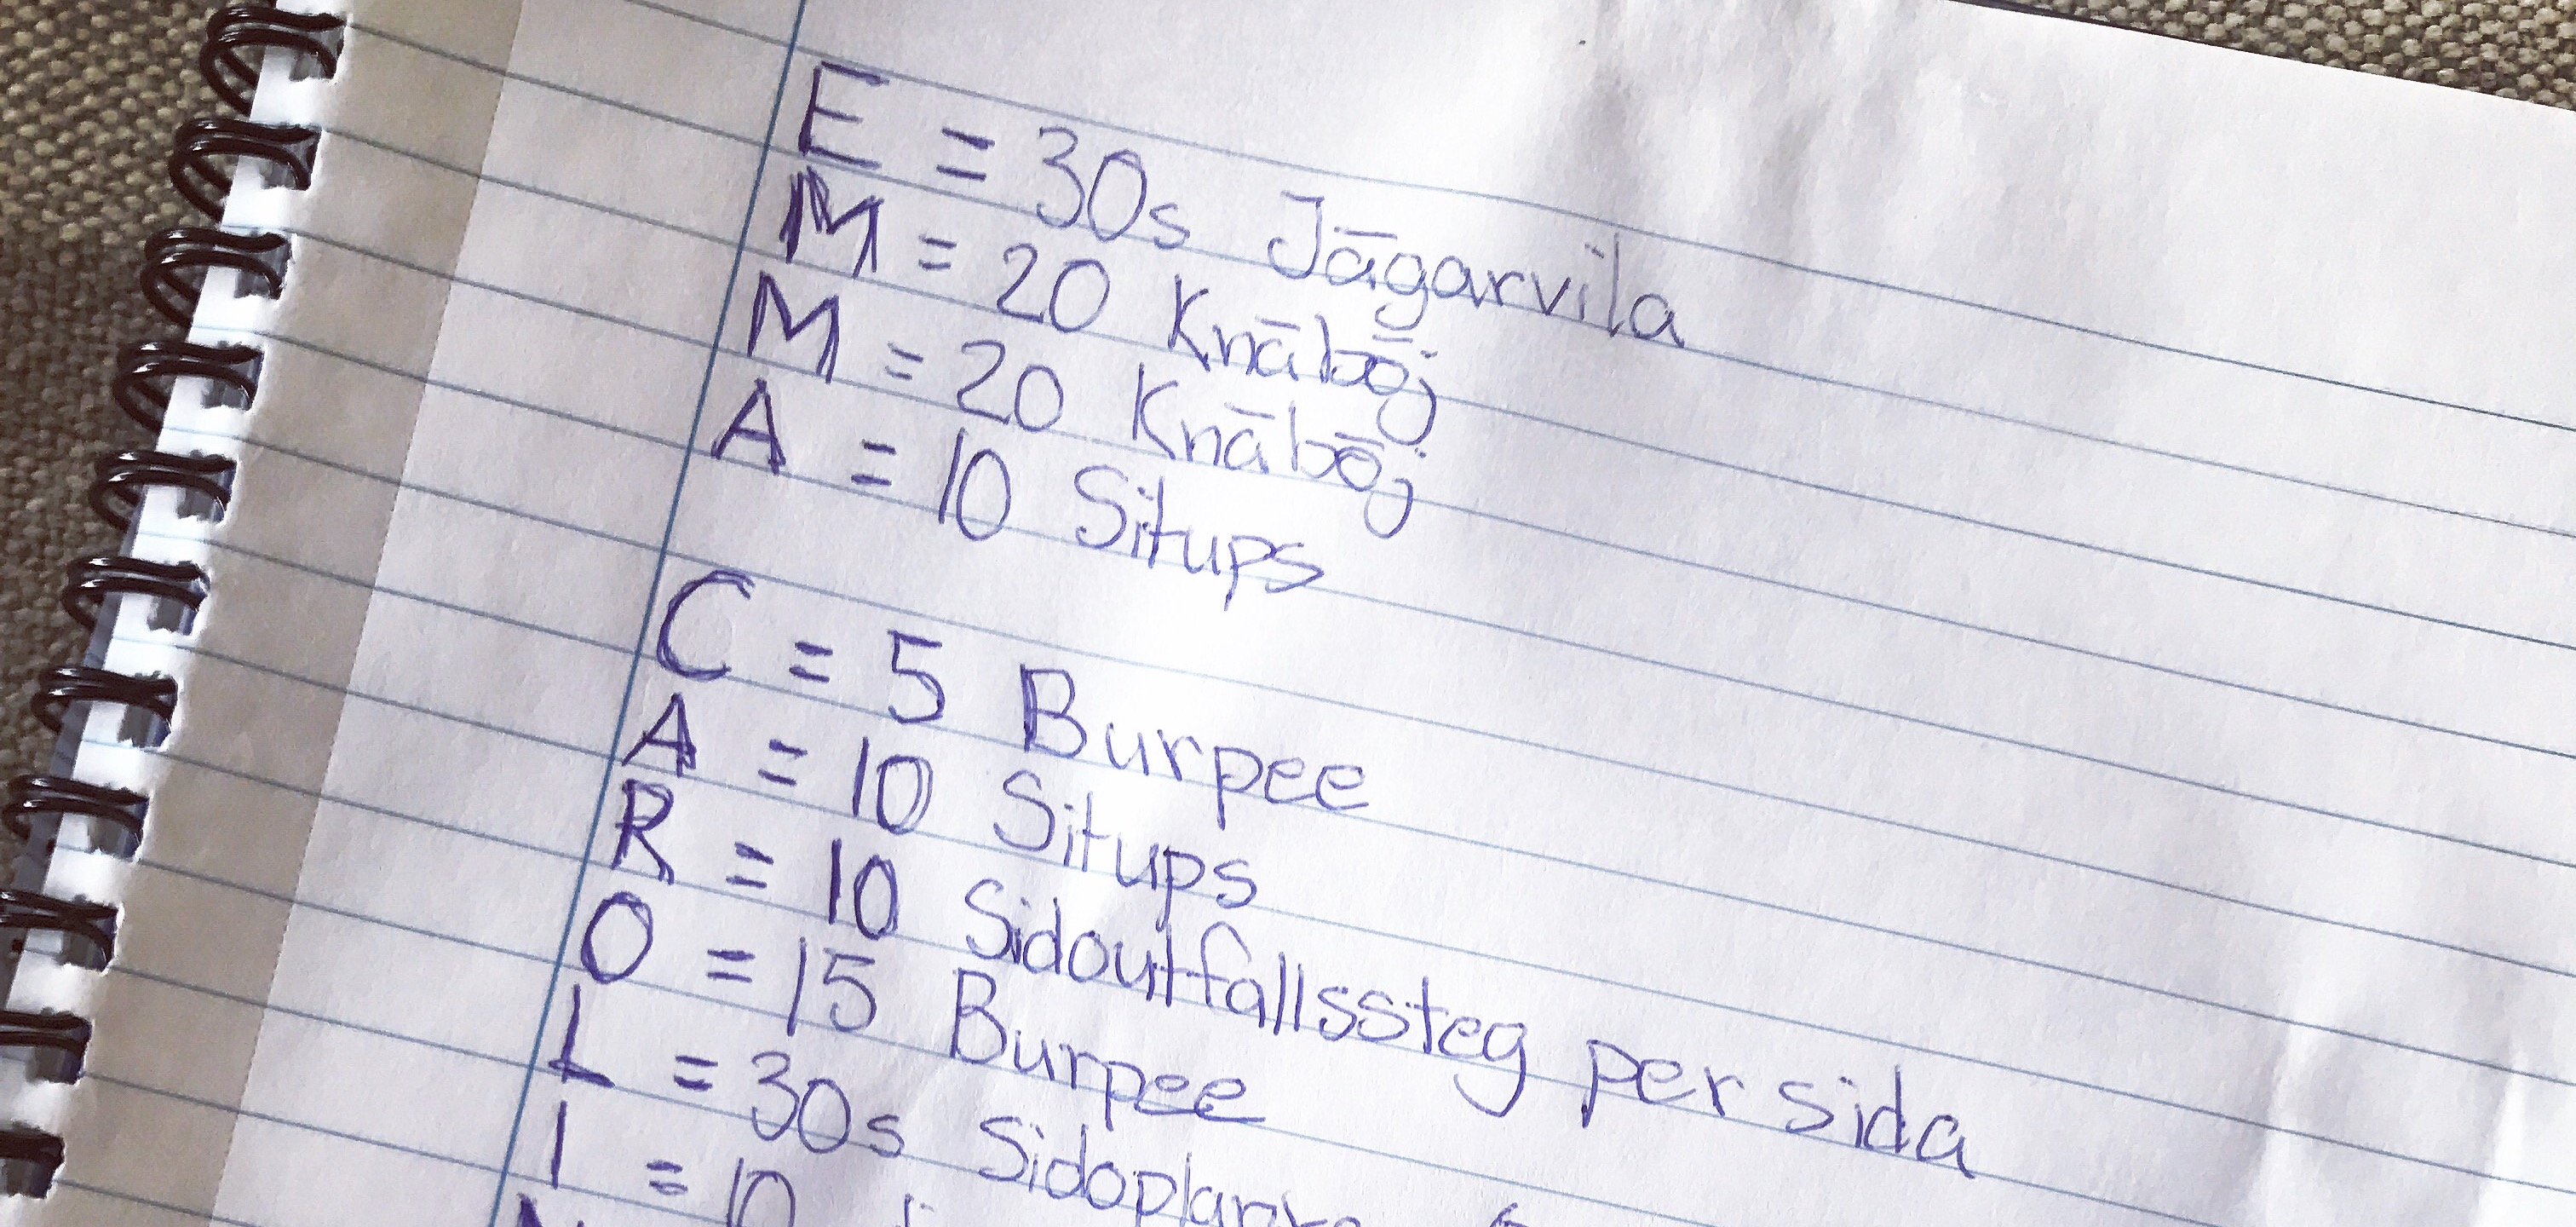 E = 30s Jägarvila
M = 20 Knäböj
M = 20 Knäböj
A = 10 Situps
C = 5 Burpee
A = 10 Situps
R = 10 Sidoutfallssteg per sida
O = 15 Burpee
L = 30s Sidoplanka
I = 10